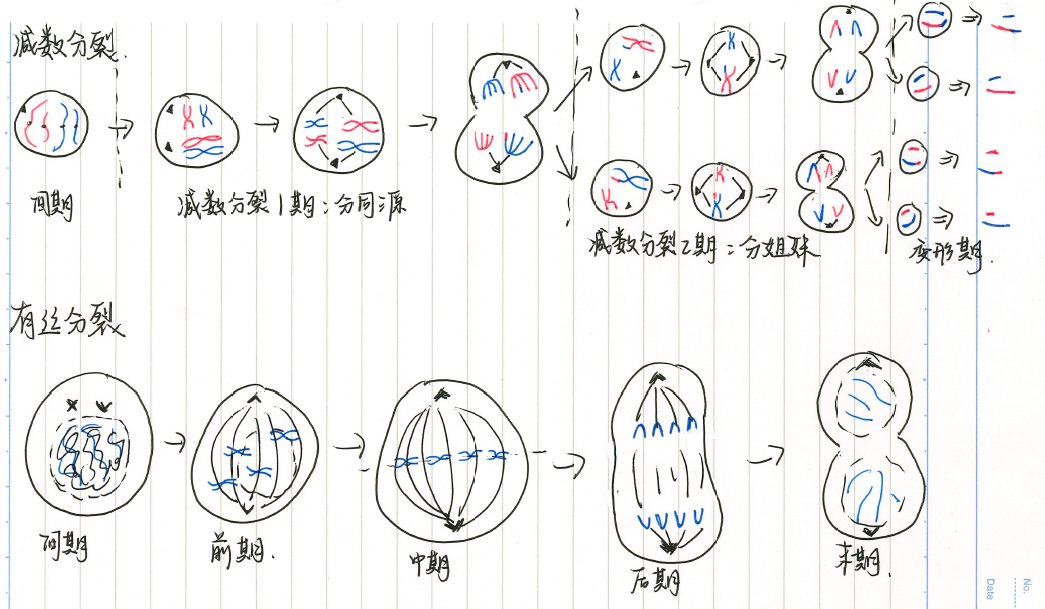 减数分裂.
间期
减数分裂1期:分同源
减数分裂2期:分姐妹
变形期.
有丝分裂
间期
前期.
中期
后期
末期.
No.
Date